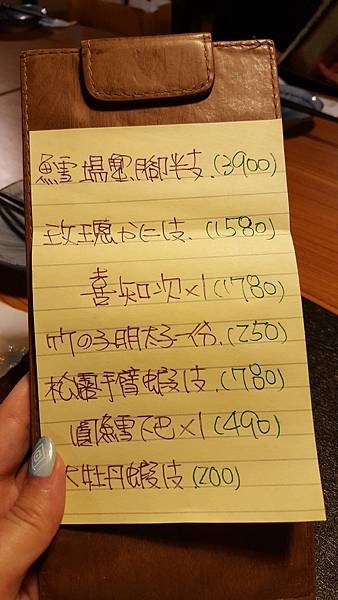 鱈場蟹腳半支.(3900)
玫瑰かに/支.(1580)
喜知次×1(1780)
竹の子明太子一份.(250)
松露手臂蝦/支.(780)
圓鱈下巴×1(490)
大牡丹蝦/支(200)